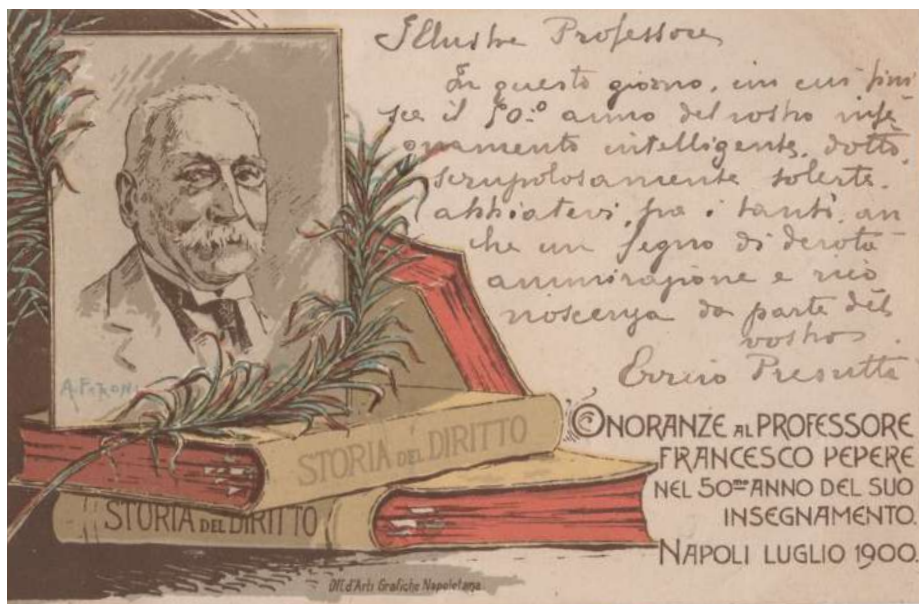 Illustre Professore,
In questo giorno, in cui fini
sce il 50.º anno del vostro inse
gnamento intelligente, dotto,
scrupolosamente solerte,
abbiatevi, fra i tanti, an
che un segno di devota
ammirazione e rico
noscenza da parte del
vostro
Errico Presutti
A. FERRONI
STORIA DEL DIRITTO
STORIA DEL DIRITTO
ONORANZE AL PROFESSORE
FRANCESCO PEPERE
NEL 50mo ANNO DEL SUO
INSEGNAMENTO.
NAPOLI LUGLIO 1900.
Off. d'Arti Grafiche Napoletana